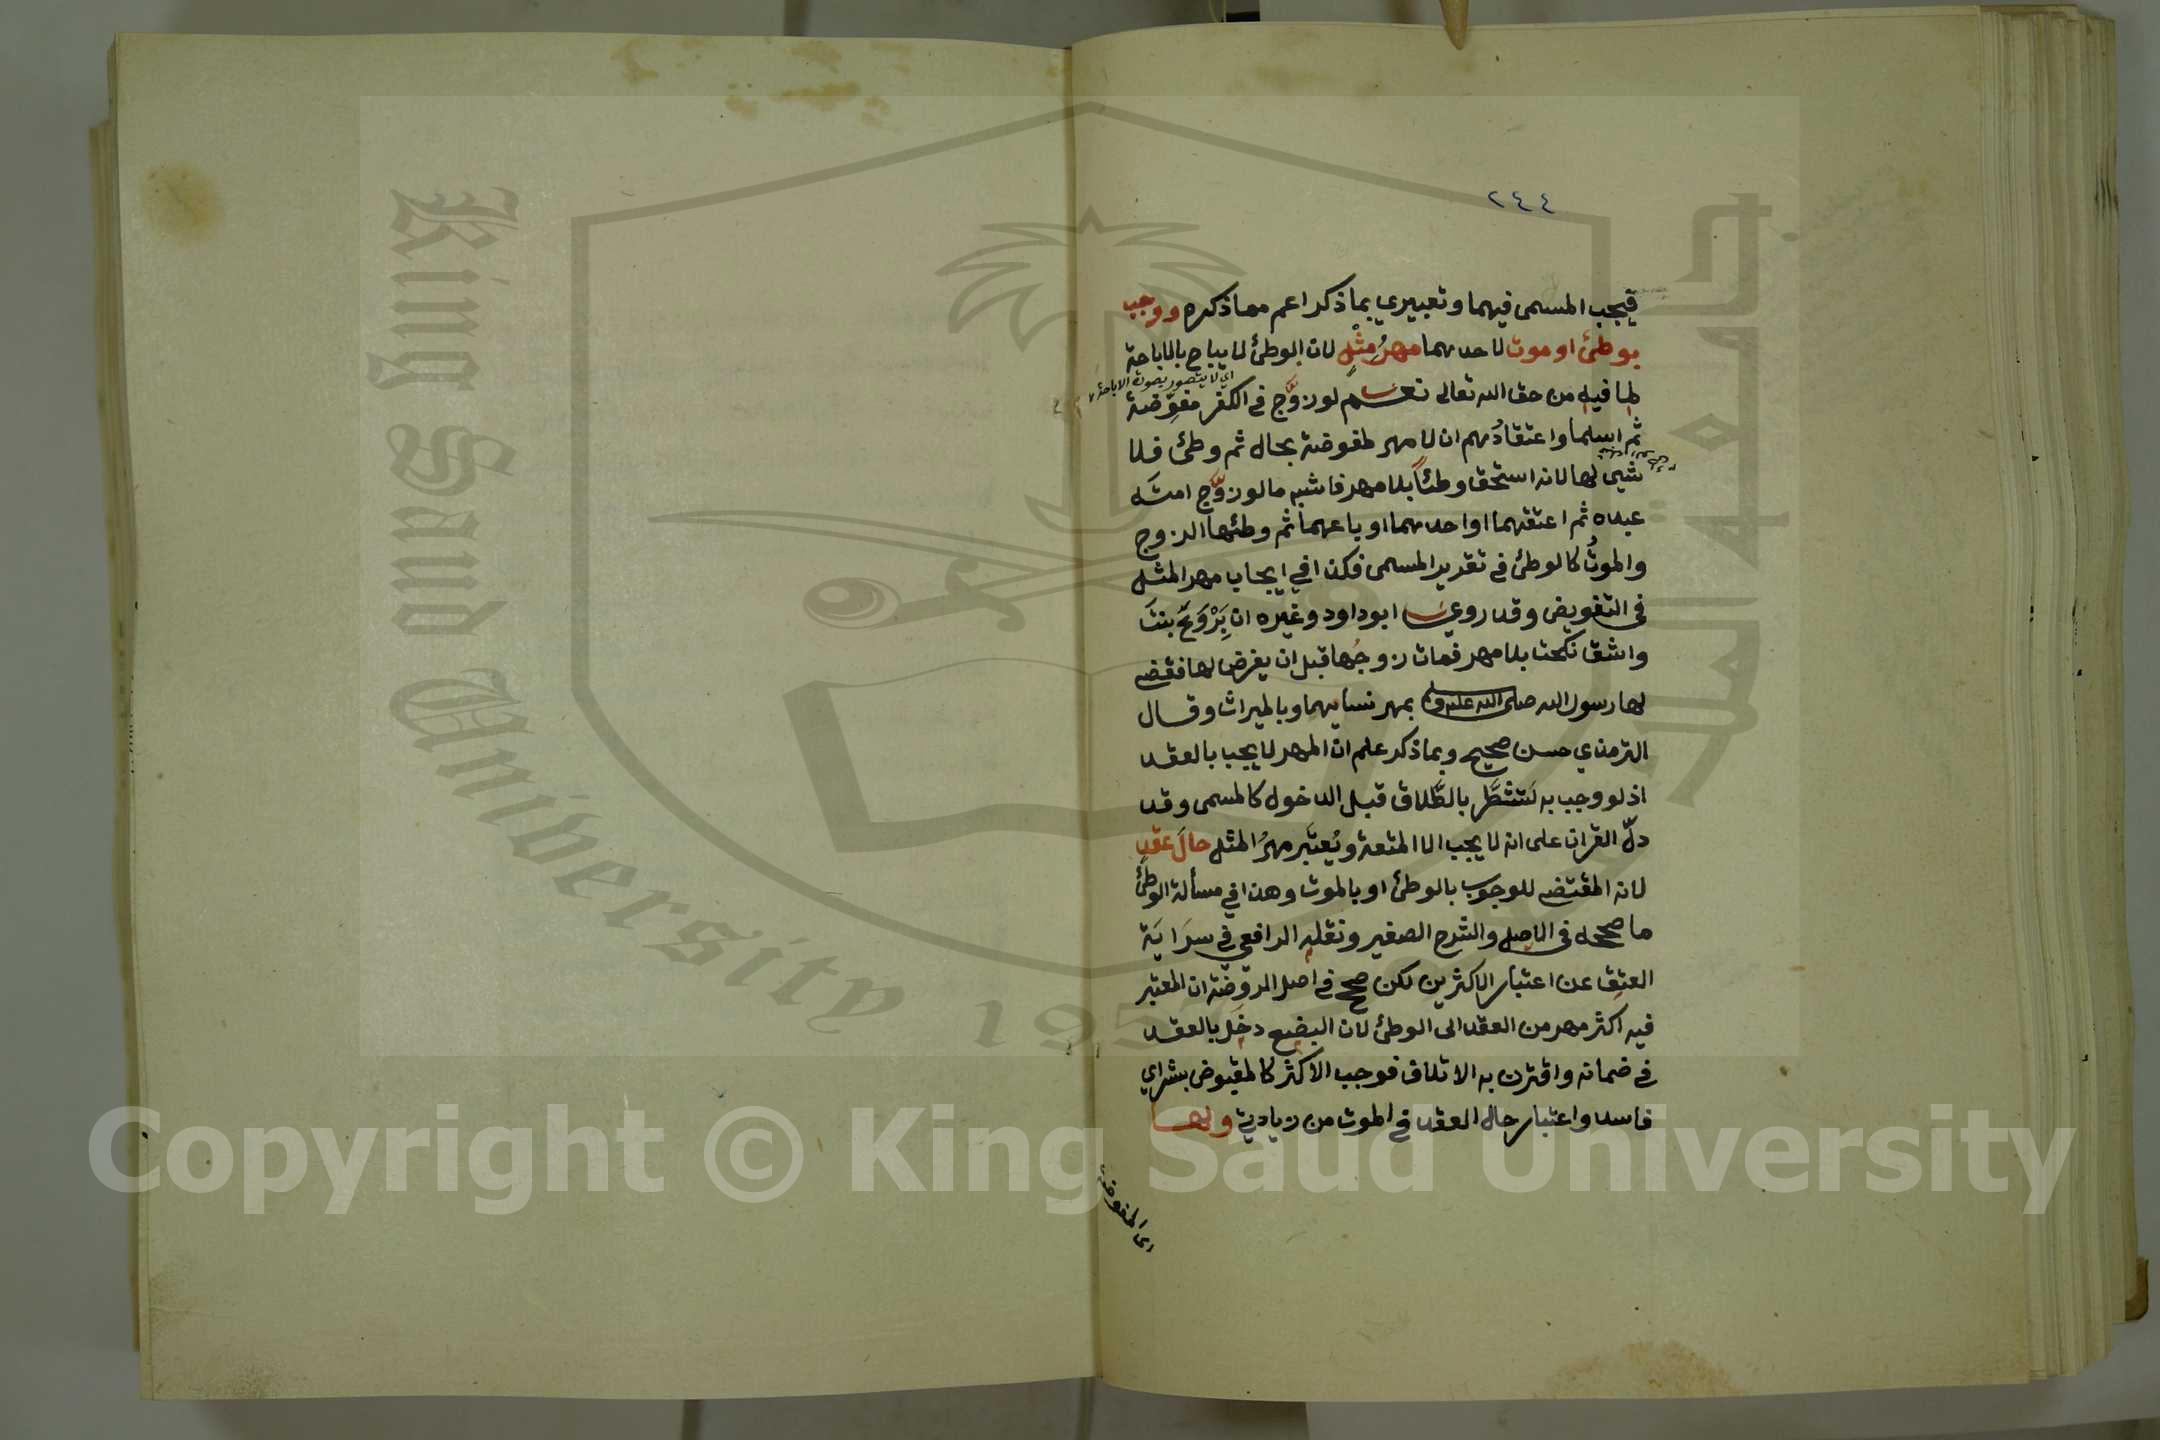 ٢٤٤
فيجب المسمى فيهما وتعبيري بما ذكر اعم مما ذكره ووجب
بوطئ او موت لاحدهما مهرُ مِثْلٍ لان الوطئ لا يباح بالاباحة
اي لا يتصور بصورة الاباحة
لما فيه من حق الله تعالى نعم لو زوَّج في الكفر مفوِّضة
ثم اسلما واعتقادُهم ان لا مهر لمفوضة بحال ثم وطئ فلا
شيى لها لانه استحق وطئاً بلا مهر فاشبه ما لو زوَّج امته
عبده ثم اعتقهما او احدهما او باعهما ثم وطئها الزوج
والموتُ كالوطئ في تقرير المسمى فكذا في ايجاب مهر المثل
في التفويض وقد روى ابو داود وغيره ان بِرْوَعَ بنتَ
واشق نكحت بلا مهر فمات زوجُها قبل ان يفرض لها فقضى
لها رسول الله صلى الله عليه وسلم بمهر نسايهما وبالميراث وقال
الترمذي حسن صحيح وبما ذكر علم ان المهر لا يجب بالعقد
اذ لو وجب به لتشطَّر بالطَّلاق قبل الدخول كالمسمى وقد
دلّ القران على انه لا يجب الا المتعة ويُعتَبر مهرُ المثل حالَ عقدٍ
لانه المقتضى للوجوب بالوطئ او بالموت وهذا في مسألة الوطئ
ما صححه في الاصل والشرح الصغير ونقله الرافعي في سرَايَة
العتق عن اعتبار الاكثرين لكن صحح في اصل الروضة ان المعتبر
فيه اكثر مهر من العقد الى الوطئ لان البضع دخل بالعقد
في ضمانه واقترن به الاتلاف فوجب الاكثر كالمقبوض بشراي
فاسد واعتبار حال العقد في الموت من زيادتي ولها
اى المفوضة
King Saud University
1957
Copyright © King Saud University